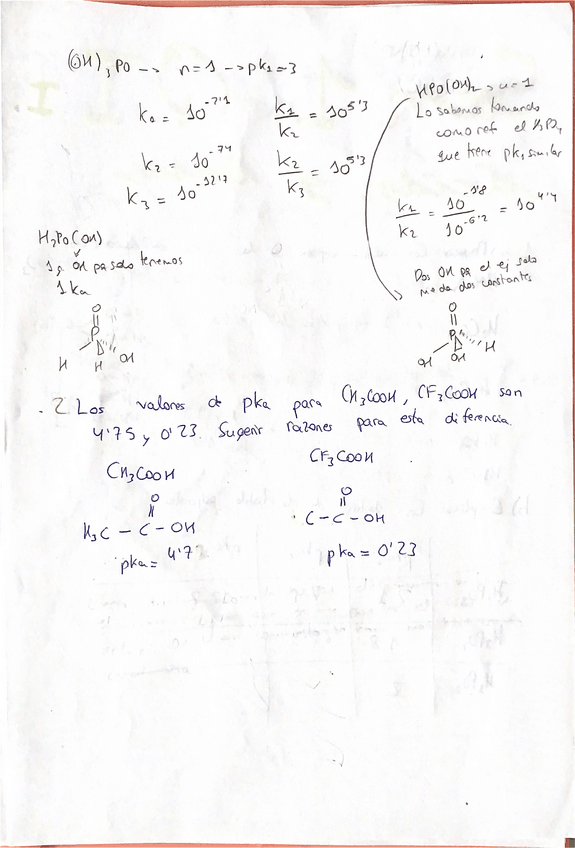 (OH)3PO → n=1 → pk1=3
k1 = 10^-2'1
k1/k2 = 10^5'3
k2 = 10^-7'4
k2/k3 = 10^5'3
k3 = 10^-12'7
HPO(OH)2 → n=1
Lo sabemos tomando
como ref el H3PO4
que tiene pk1 similar
k1/k2 = 10^-1'8/10^-6'2 = 10^4'4
Dos OH pa el ej solo
dos constantes
H2PO(OH)
1 g. OH pa solo tenemos
1 ka
O
P
H H OH
O
P
H
OH OH
2 Los valores de pka para CH3COOH, CF3COOH son
4'75 y 0'23. Sugerir razones para esta diferencia.
CH3COOH
CF3COOH
O
H3C - C - OH
pka = 4'7
O
C - C - OH
pka = 0'23